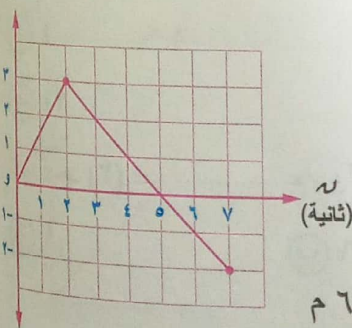 ٣
٢
١
و
١-
٢-
١ ٢ ٣ ٤ ٥ ٦ ٧
ن
(ثانية)
٦ م